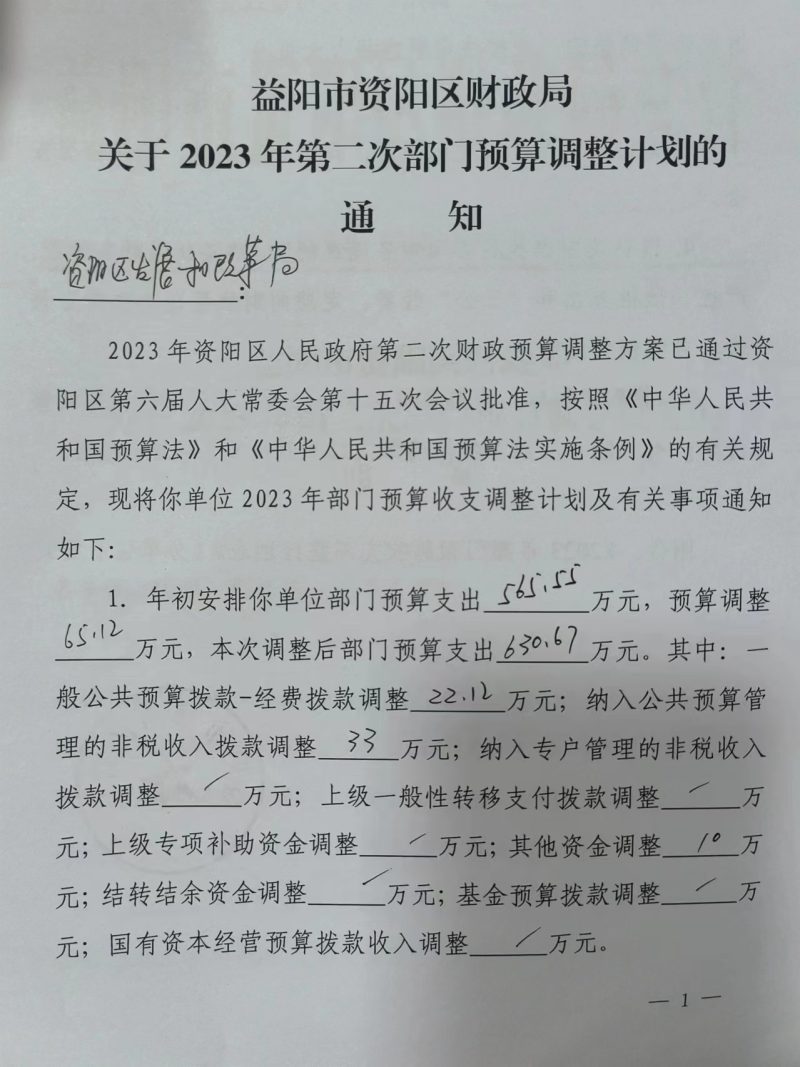 益阳市资阳区财政局
关于 2023 年第二次部门预算调整计划的
通 知
资阳区发展和改革局:
2023 年资阳区人民政府第二次财政预算调整方案已通过资
阳区第六届人大常委会第十五次会议批准，按照《中华人民共
和国预算法》和《中华人民共和国预算法实施条例》的有关规
定，现将你单位 2023 年部门预算收支调整计划及有关事项通知
如下：
1. 年初安排你单位部门预算支出 565.55 万元，预算调整
65.12 万元，本次调整后部门预算支出 630.67 万元。其中：一
般公共预算拨款-经费拨款调整 22.12 万元；纳入公共预算管
理的非税收入拨款调整 33 万元；纳入专户管理的非税收入
拨款调整 / 万元；上级一般性转移支付拨款调整 / 万
元；上级专项补助资金调整 / 万元；其他资金调整 10 万
元；结转结余资金调整 / 万元；基金预算拨款调整 / 万
元；国有资本经营预算拨款收入调整 / 万元。
— 1 —